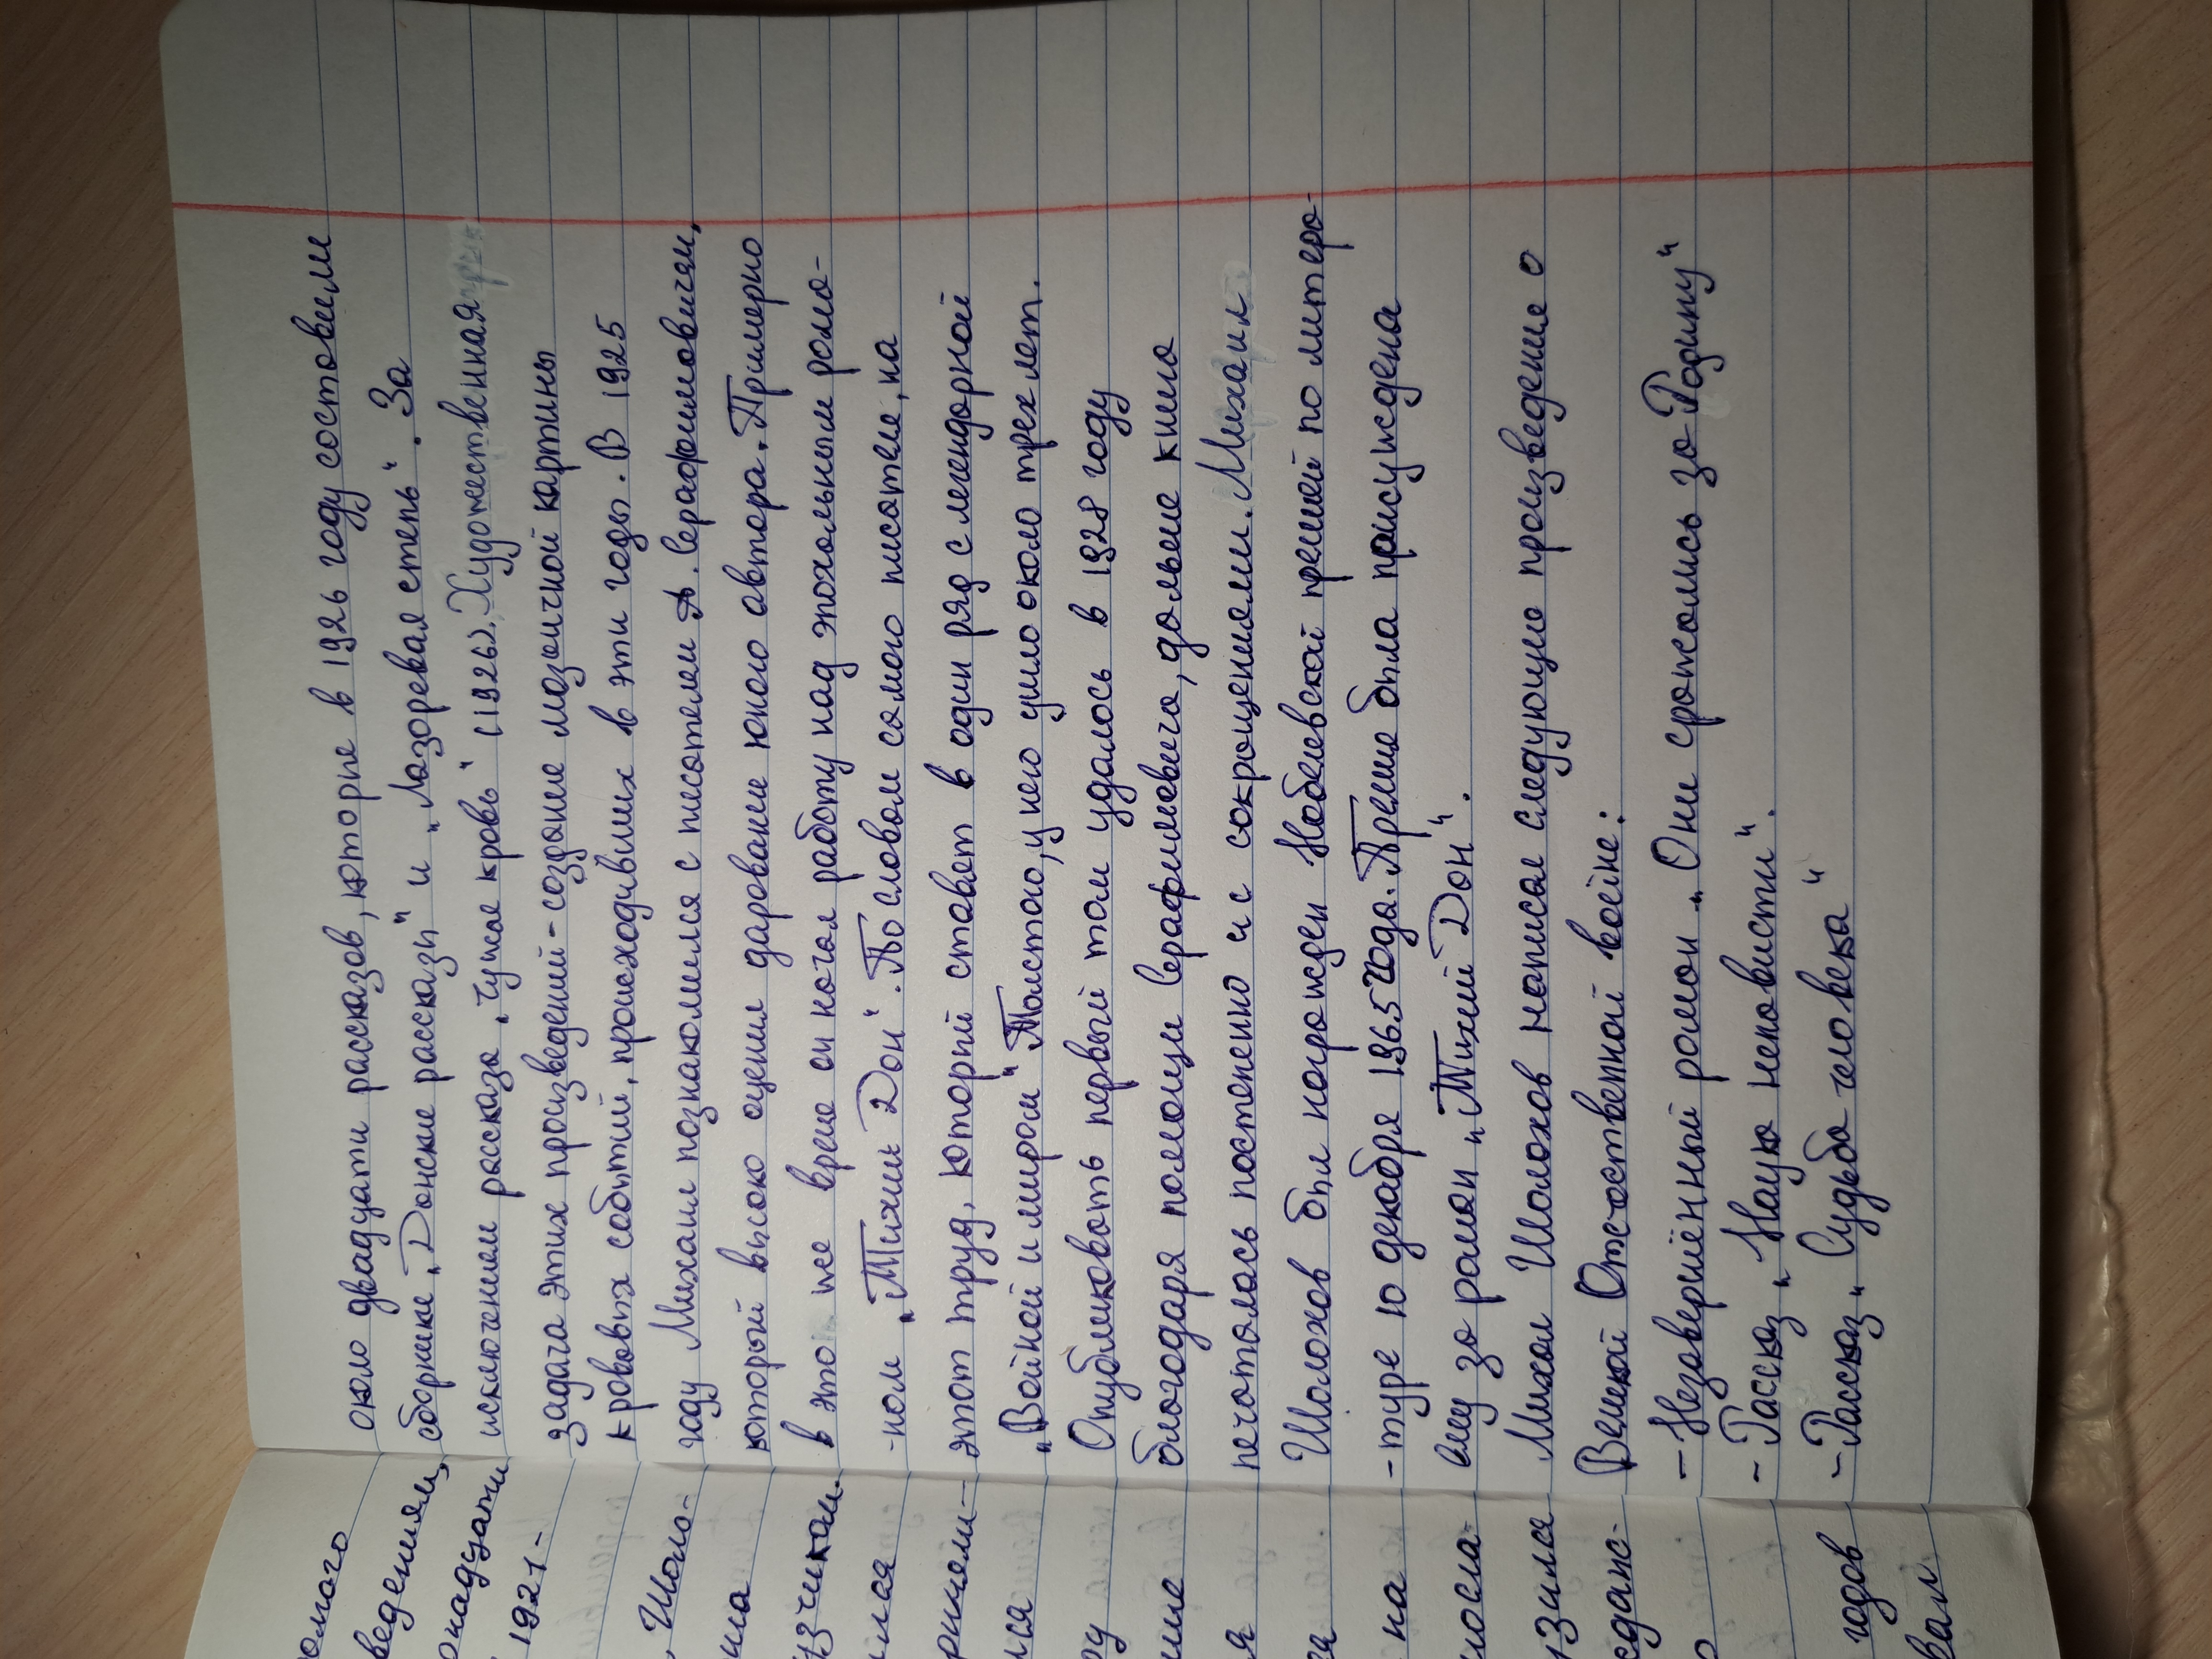 около двадцати рассказов, которые в 1926 году составили
сборники „Донские рассказы" и „Лазоревая степь". За
исключением рассказа „Чужая кровь" (1926), Художественная
задача этих произведений - создание мозаичной картины
кровавых событий, происходивших в эти годы. В 1925
году Михаил познакомился с писателем А. Серафимовичем,
который высоко оценил дарование юного автора. Примерно
в это же время он начал работу над эпохальным рома-
-ном „Тихий Дон". По словам самого писателя, на
этот труд, который ставят в один ряд с легендарной
„Войной и миром" Толстого, у него ушло около трех лет.
Опубликовать первый том удалось в 1928 году
благодаря помощи Серафимовича, дальше книга
печаталась постепенно и с сокращениями. Михаил
Шолохов был награжден Нобелевской премией по литера-
-туре 10 декабря 1965 года. Премия была присуждена
ему за роман „Тихий Дон".
Михаил Шолохов написал следующие произведения о
Великой Отечественной войне:
- Незавершённый роман „Они сражались за Родину"
- Рассказ „Наука ненависти".
- Рассказ „Судьба человека"
омого
ведениям,
надцати
1921-
Шоло-
на
зчиком.
лая
ся
ру
ние
я
га
на
посла-
зился
годов
вали